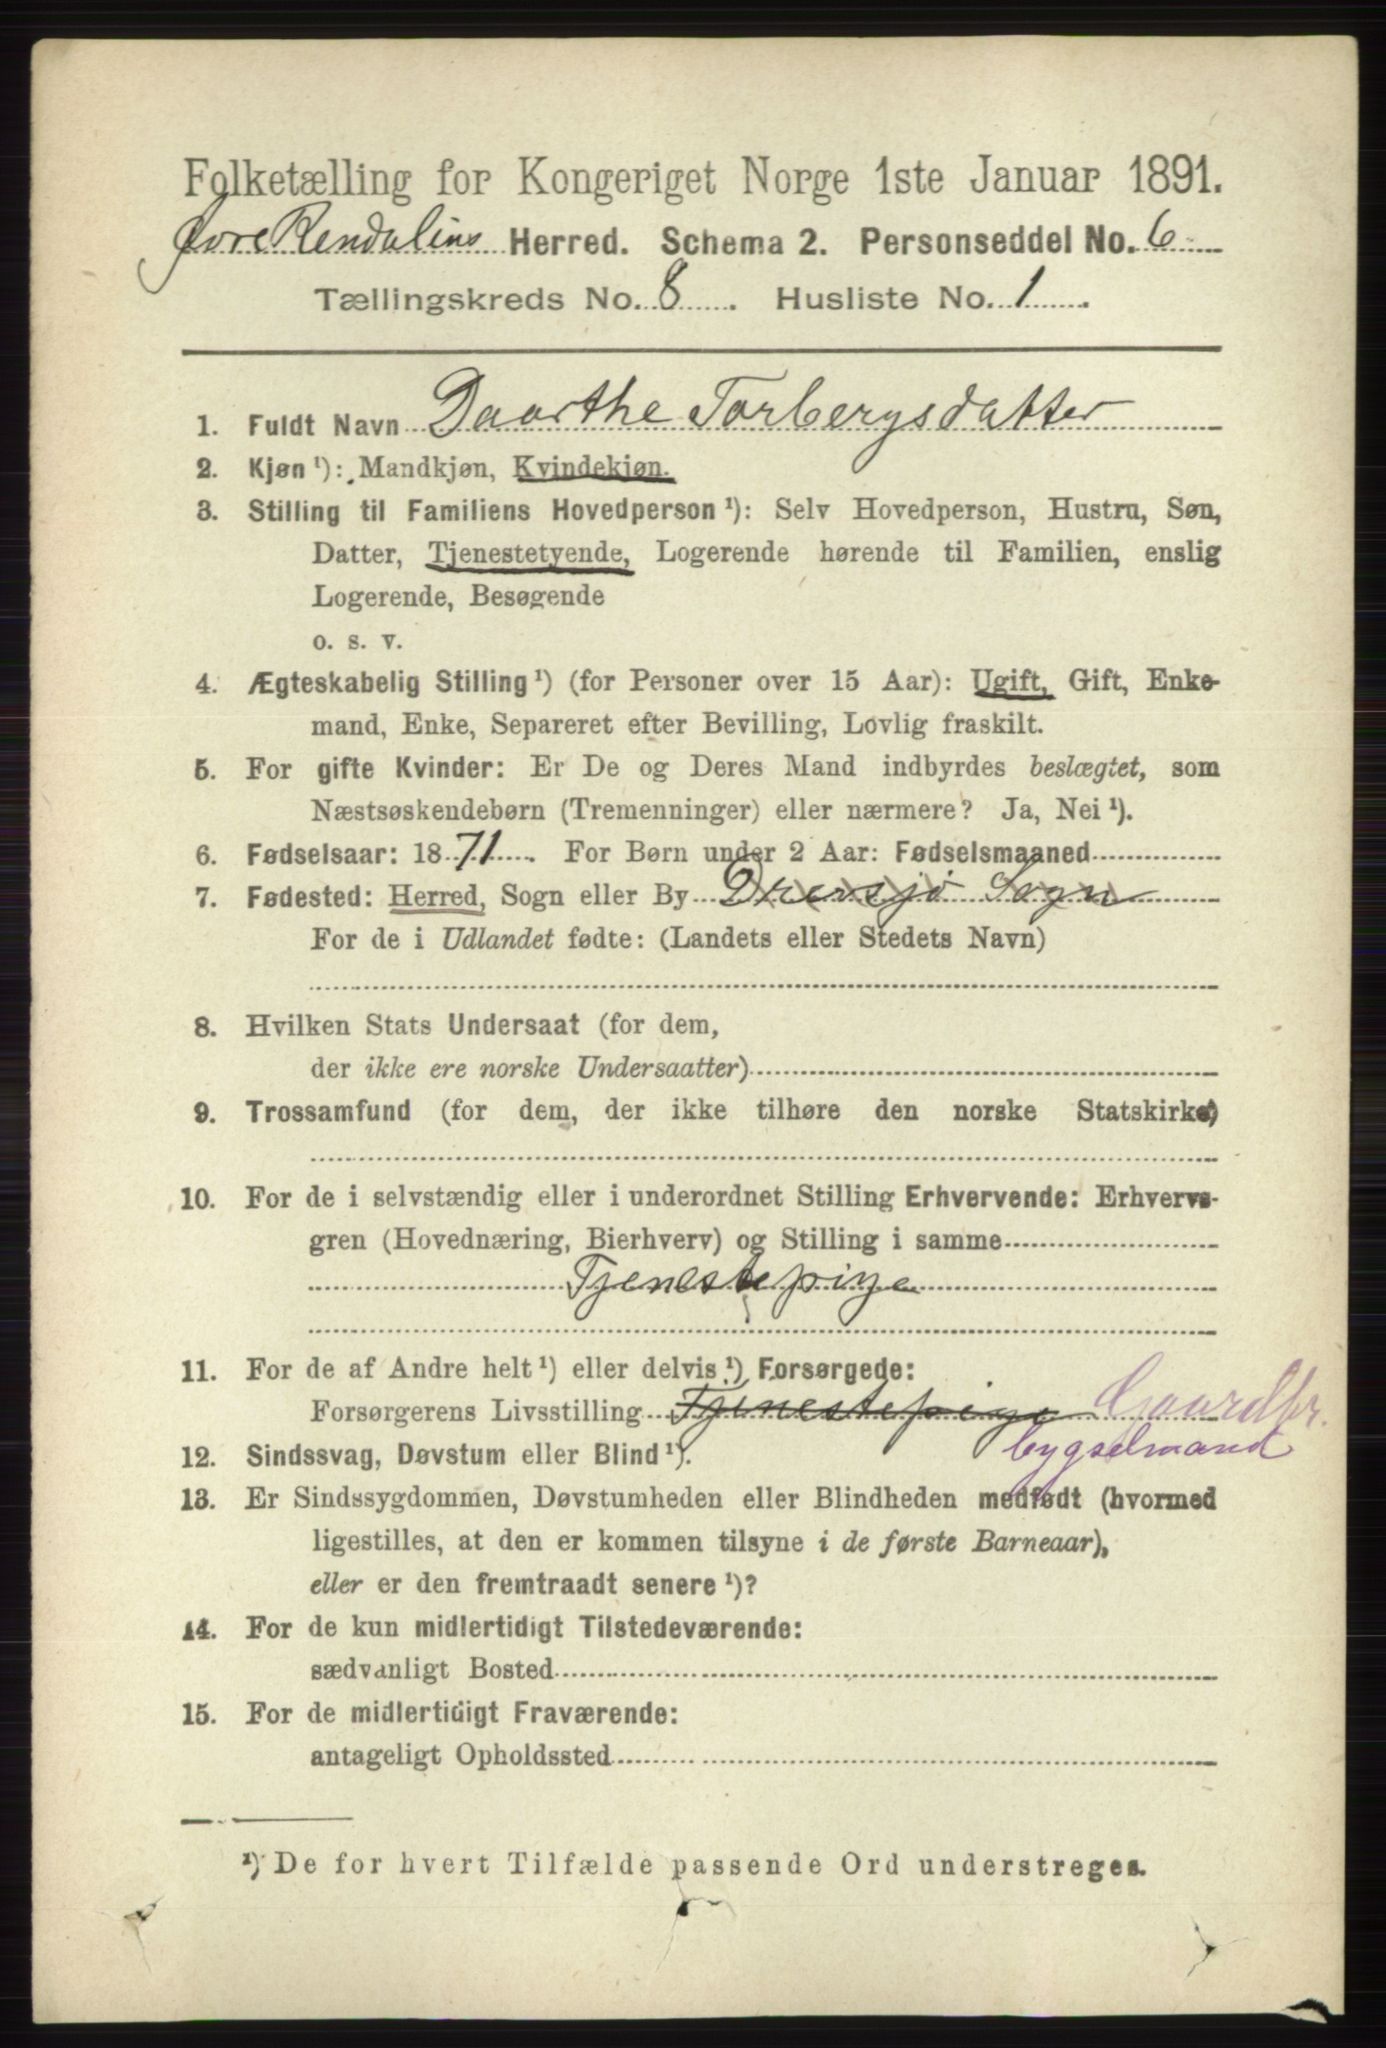 Folketælling for Kongeriget Norge 1ste Januar 1891.
Øvre Rendalens Herred. Schema 2. Personseddel No. 6
Tællingskreds No. 8. Husliste No. 1.
1. Fuldt Navn Daarthe Torbergsdatter
2. Kjøn ¹): Mandkjøn, Kvindekjøn.
3. Stilling til Familiens Hovedperson ¹): Selv Hovedperson, Hustru, Søn,
Datter, Tjenestetyende, Logerende hørende til Familien, enslig
Logerende, Besøgende
o. s. v.
4. Ægteskabelig Stilling ¹) (for Personer over 15 Aar): Ugift, Gift, Enke-
mand, Enke, Separeret efter Bevilling, Lovlig fraskilt.
5. For gifte Kvinder: Er De og Deres Mand indbyrdes beslægtet, som
Næstsøskendebørn (Tremenninger) eller nærmere? Ja, Nei ¹).
6. Fødselsaar: 1871. For Børn under 2 Aar: Fødselsmaaned
7. Fødested: Herred, Sogn eller By Drevsjø Sogn
For de i Udlandet fødte: (Landets eller Stedets Navn)
8. Hvilken Stats Undersaat (for dem,
der ikke ere norske Undersaatter)
9. Trossamfund (for dem, der ikke tilhøre den norske Statskirke)
10. For de i selvstændig eller i underordnet Stilling Erhvervende: Erhvervs-
gren (Hovednæring, Bierhverv) og Stilling i samme
Tjenestepige
11. For de af Andre helt ¹) eller delvis ¹) Forsørgede:
Forsørgerens Livsstilling Tjenestepige Gaardbr.
bygselmand
12. Sindssvag, Døvstum eller Blind ¹).
13. Er Sindssygdommen, Døvstumheden eller Blindheden medfødt (hvormed
ligestilles, at den er kommen tilsyne i de første Barneaar),
eller er den fremtraadt senere ¹)?
14. For de kun midlertidigt Tilstedeværende:
sædvanligt Bosted
15. For de midlertidigt Fraværende:
antageligt Opholdssted
¹) De for hvert Tilfælde passende Ord understreges.